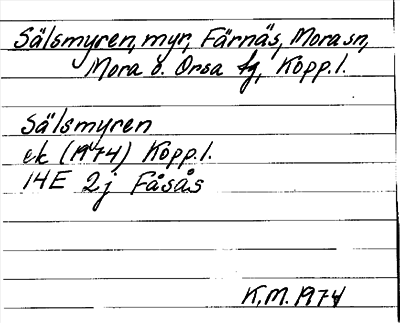 Sälsmyren, myr, Färnäs, Mora sn,
Mora o. Orsa tg, Kopp. l.
Sälsmyren
ek (1974) Kopp. l.
14E 2j Fåsås
K.M. 1974